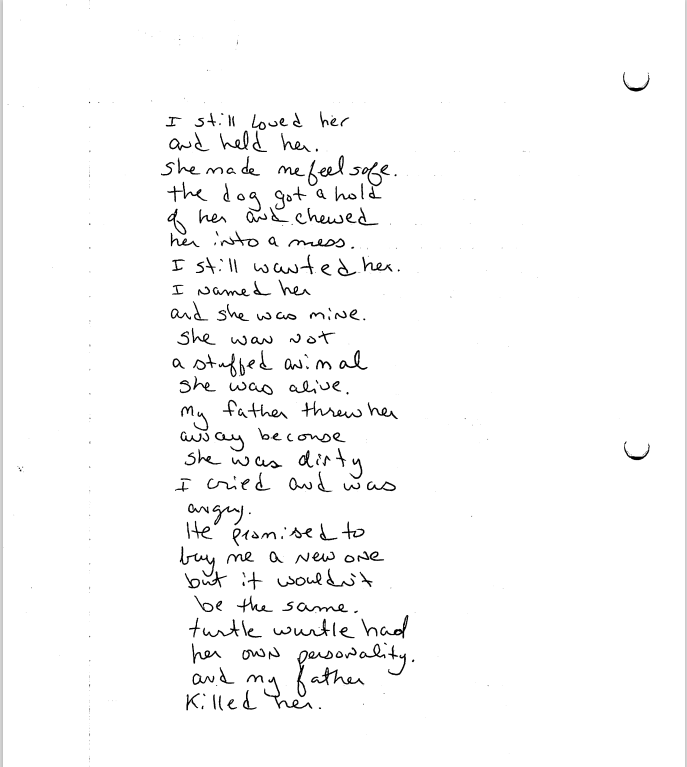 I still loved her
and held her.
she made me feel safe.
the dog got a hold
of her and chewed
her into a mess.
I still wanted her.
I named her
and she was mine.
she was not
a stuffed animal
she was alive.
my father threw her
away because
she was dirty
I cried and was
angry.
He promised to
buy me a new one
but it wouldn't
be the same.
turtle wurtle had
her own personality.
and my father
killed her.